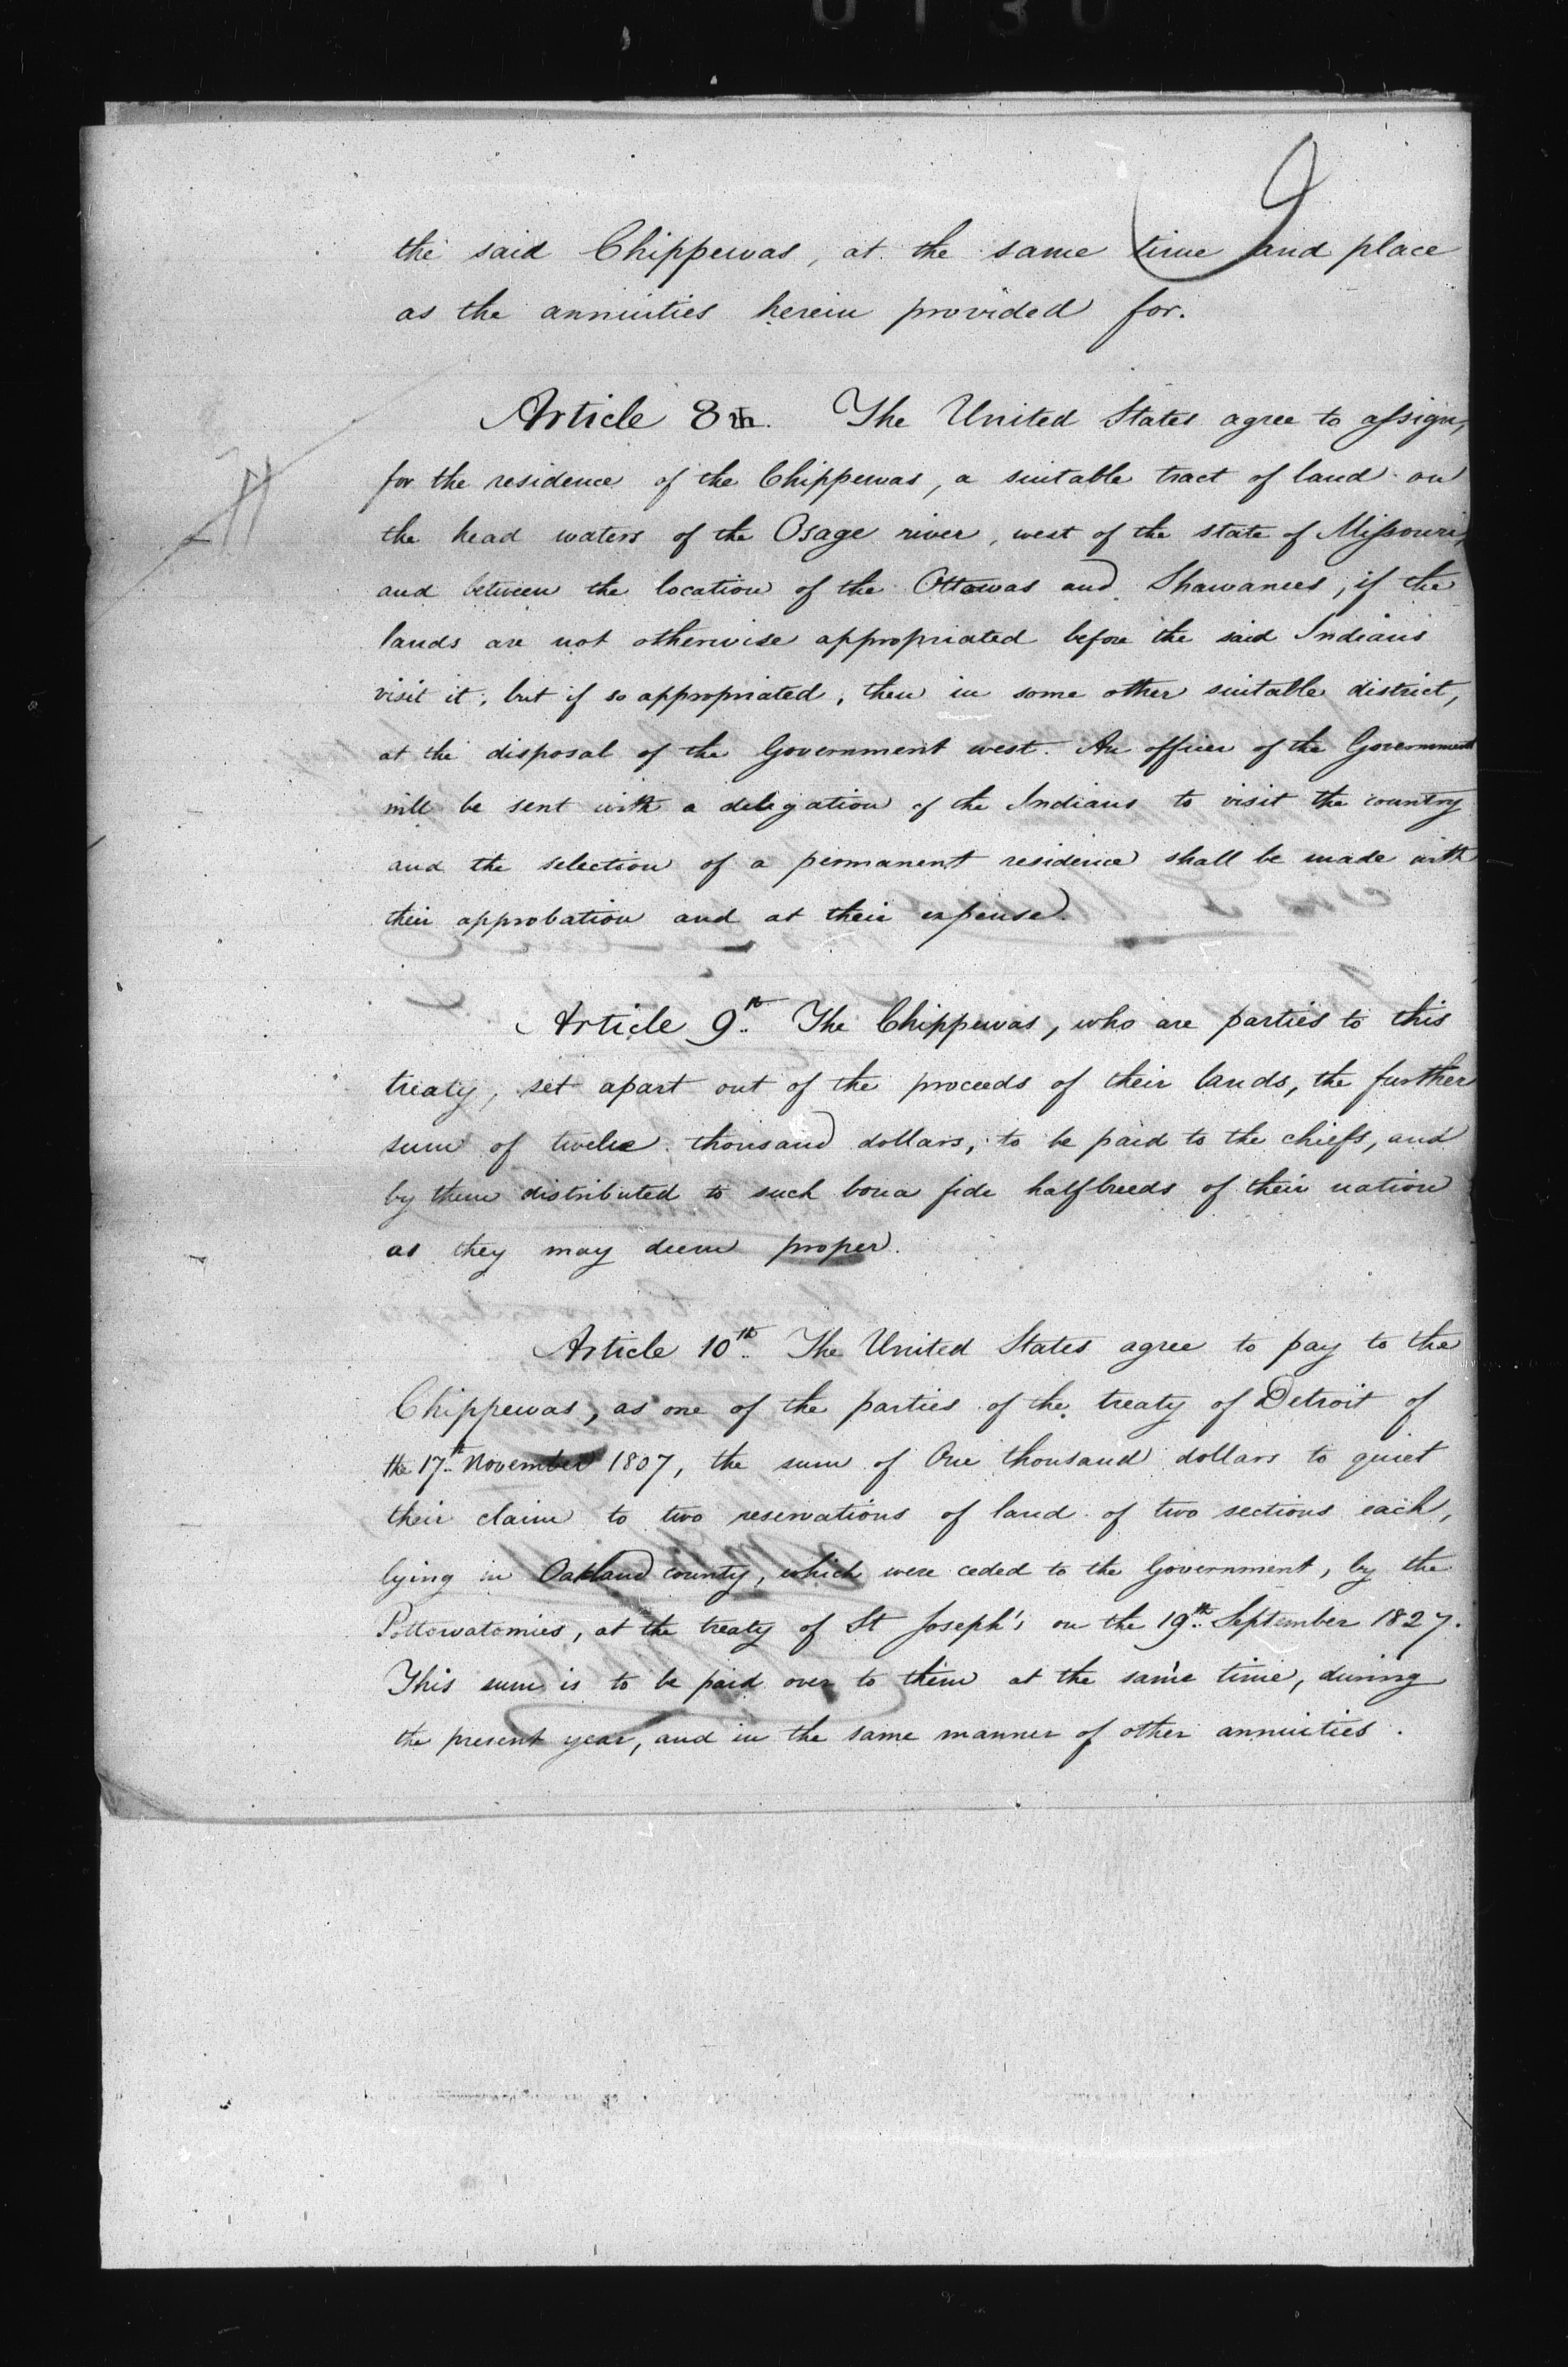 9
the said Chippewas, at the same time and place
as the annuities herein provided for.
Article 8th. The United States agree to assign,
for the residence of the Chippewas, a suitable tract of land on
the head waters of the Osage river, west of the state of Missouri,
and between the location of the Ottawas and Shawanees, if the
lands are not otherwise appropriated before the said Indians
visit it; but if so appropriated, then in some other suitable district,
at the disposal of the Government west. An officer of the Government
will be sent with a delegation of the Indians to visit the country
and the selection of a permanent residence shall be made with
their approbation and at their expense.
Article 9th. The Chippewas, who are parties to this
treaty, set apart out of the proceeds of their lands, the further
sum of twelve thousand dollars, to be paid to the chiefs, and
by them distributed to such bona fide halfbreeds of their nation
as they may deem proper.
Article 10th. The United States agree to pay to the
Chippewas, as one of the parties of the treaty of Detroit of
the 17th November 1807, the sum of One thousand dollars to quiet
their claim to two reservations of land of two sections each,
lying in Oakland county, which were ceded to the Government, by the
Pottowatomies, at the treaty of St Joseph's on the 19th September 1827.
This sum is to be paid over to them at the same time, during
the present year, and in the same manner of other annuities.